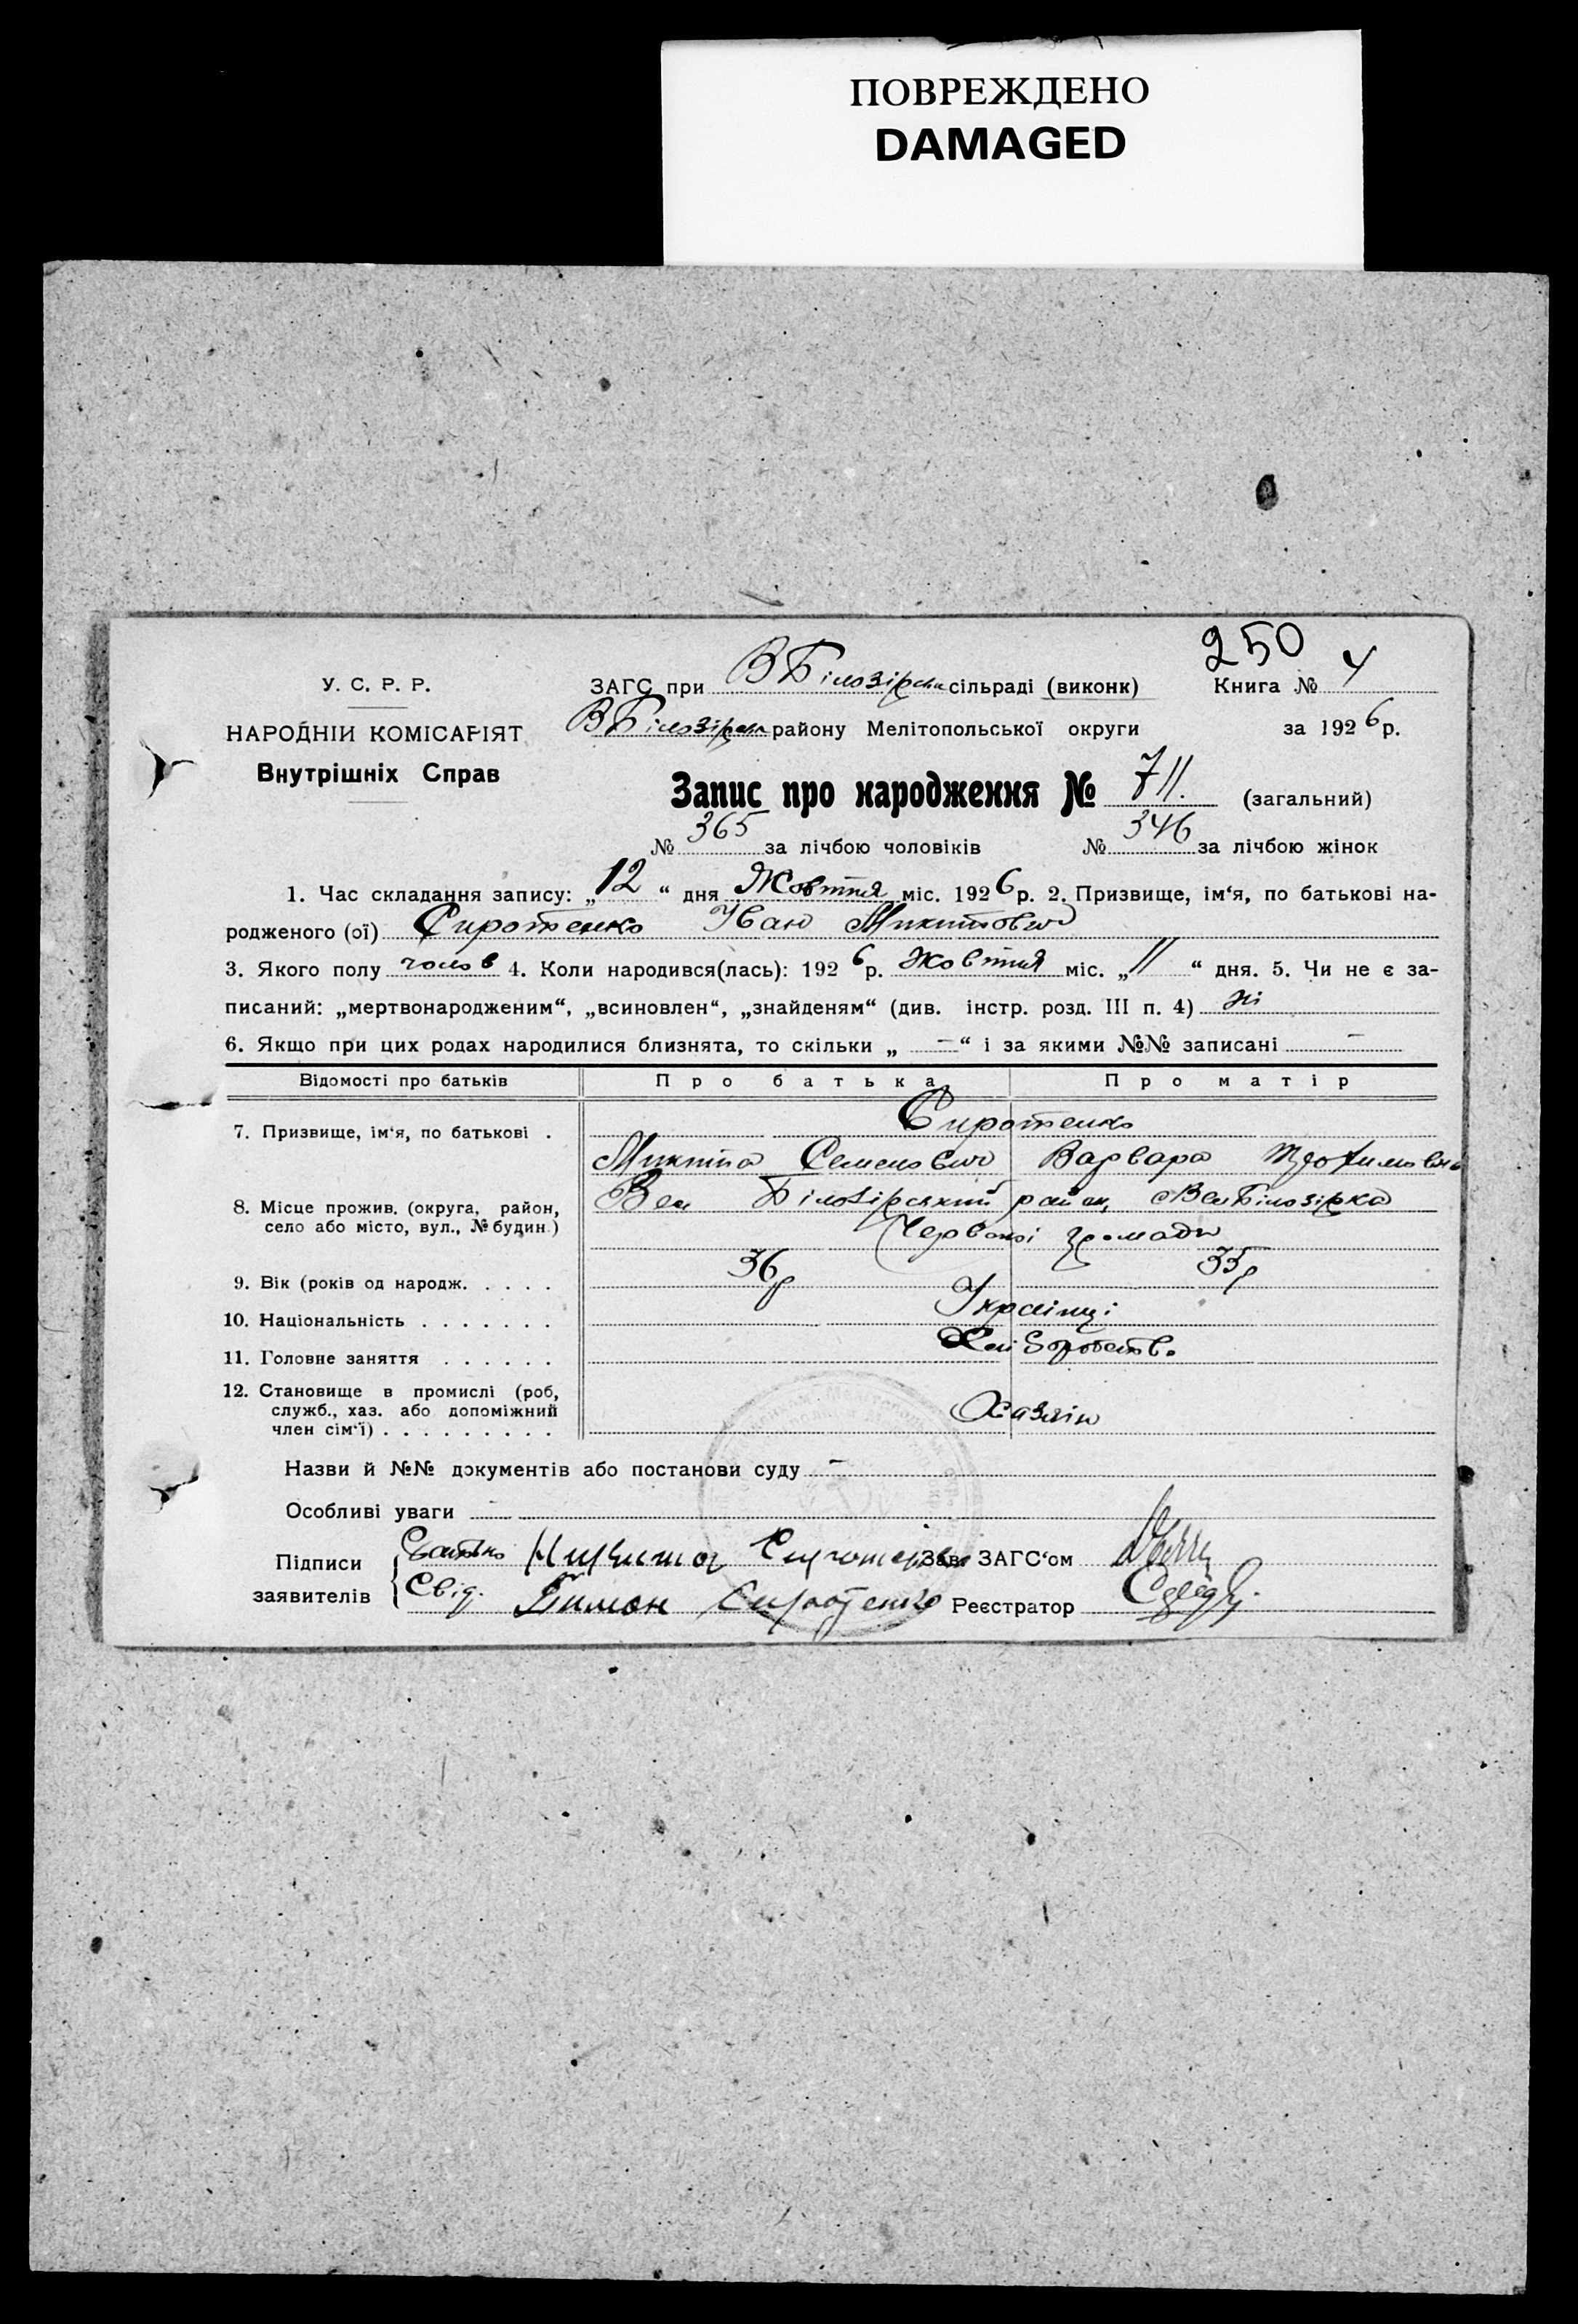 ПОВРЕЖДЕНО
DAMAGED
250
У. С. Р. Р.
ЗАГС при В Білозірск сільраді (виконк)
Книга № 4
НАРОДНІЙ КОМІСАРІЯТ
В Білозірск району Мелітопольської округи
за 1926 р.
Внутрішніх Справ
Запис про народження № 711. (загальний)
№ 365 за лічбою чоловіків № 346 за лічбою жінок
1. Час складання запису: „12“ дня Жовтня міс. 1926 р. 2. Призвище, ім‘я, по батькові на-
родженого (ої) Сиротенко Іван Микитович
3. Якого полу чолов 4. Коли народився(лась): 1926 р. Жовтня міс. „11“ дня. 5. Чи не є за-
писаний: „мертвонародженим“, „всиновлен“, „знайденям“ (див. інстр. розд. III п. 4) ні
6. Якщо при цих родах народилися близнята, то скільки „ — “ і за якими №№ записані —
Відомості про батьків Про батька Про матір
7. Призвище, ім‘я, по батькові . Сиротенко
Микита Семенович Варвара
8. Місце прожив. (округа, район, Вел Білозірський район, с Вел Білозірка
село або місто, вул., № будин.)
Червоної громади
9. Вік (років од народж. . . . . 36 р 35 р
10. Національність . . . . . . . Українці
11. Головне заняття . . . . . .
12. Становище в промислі (роб,
служб., хаз. або допоміжний Хазяїн
член сім‘ї) . . . . . . . . .
Назви й №№ документів або постанови суду —
Особливі уваги —
Підписи Батько Никита Сиротенко Зав. ЗАГС‘ом
заявителів Свід. Тимон Сиротенко Реєстратор